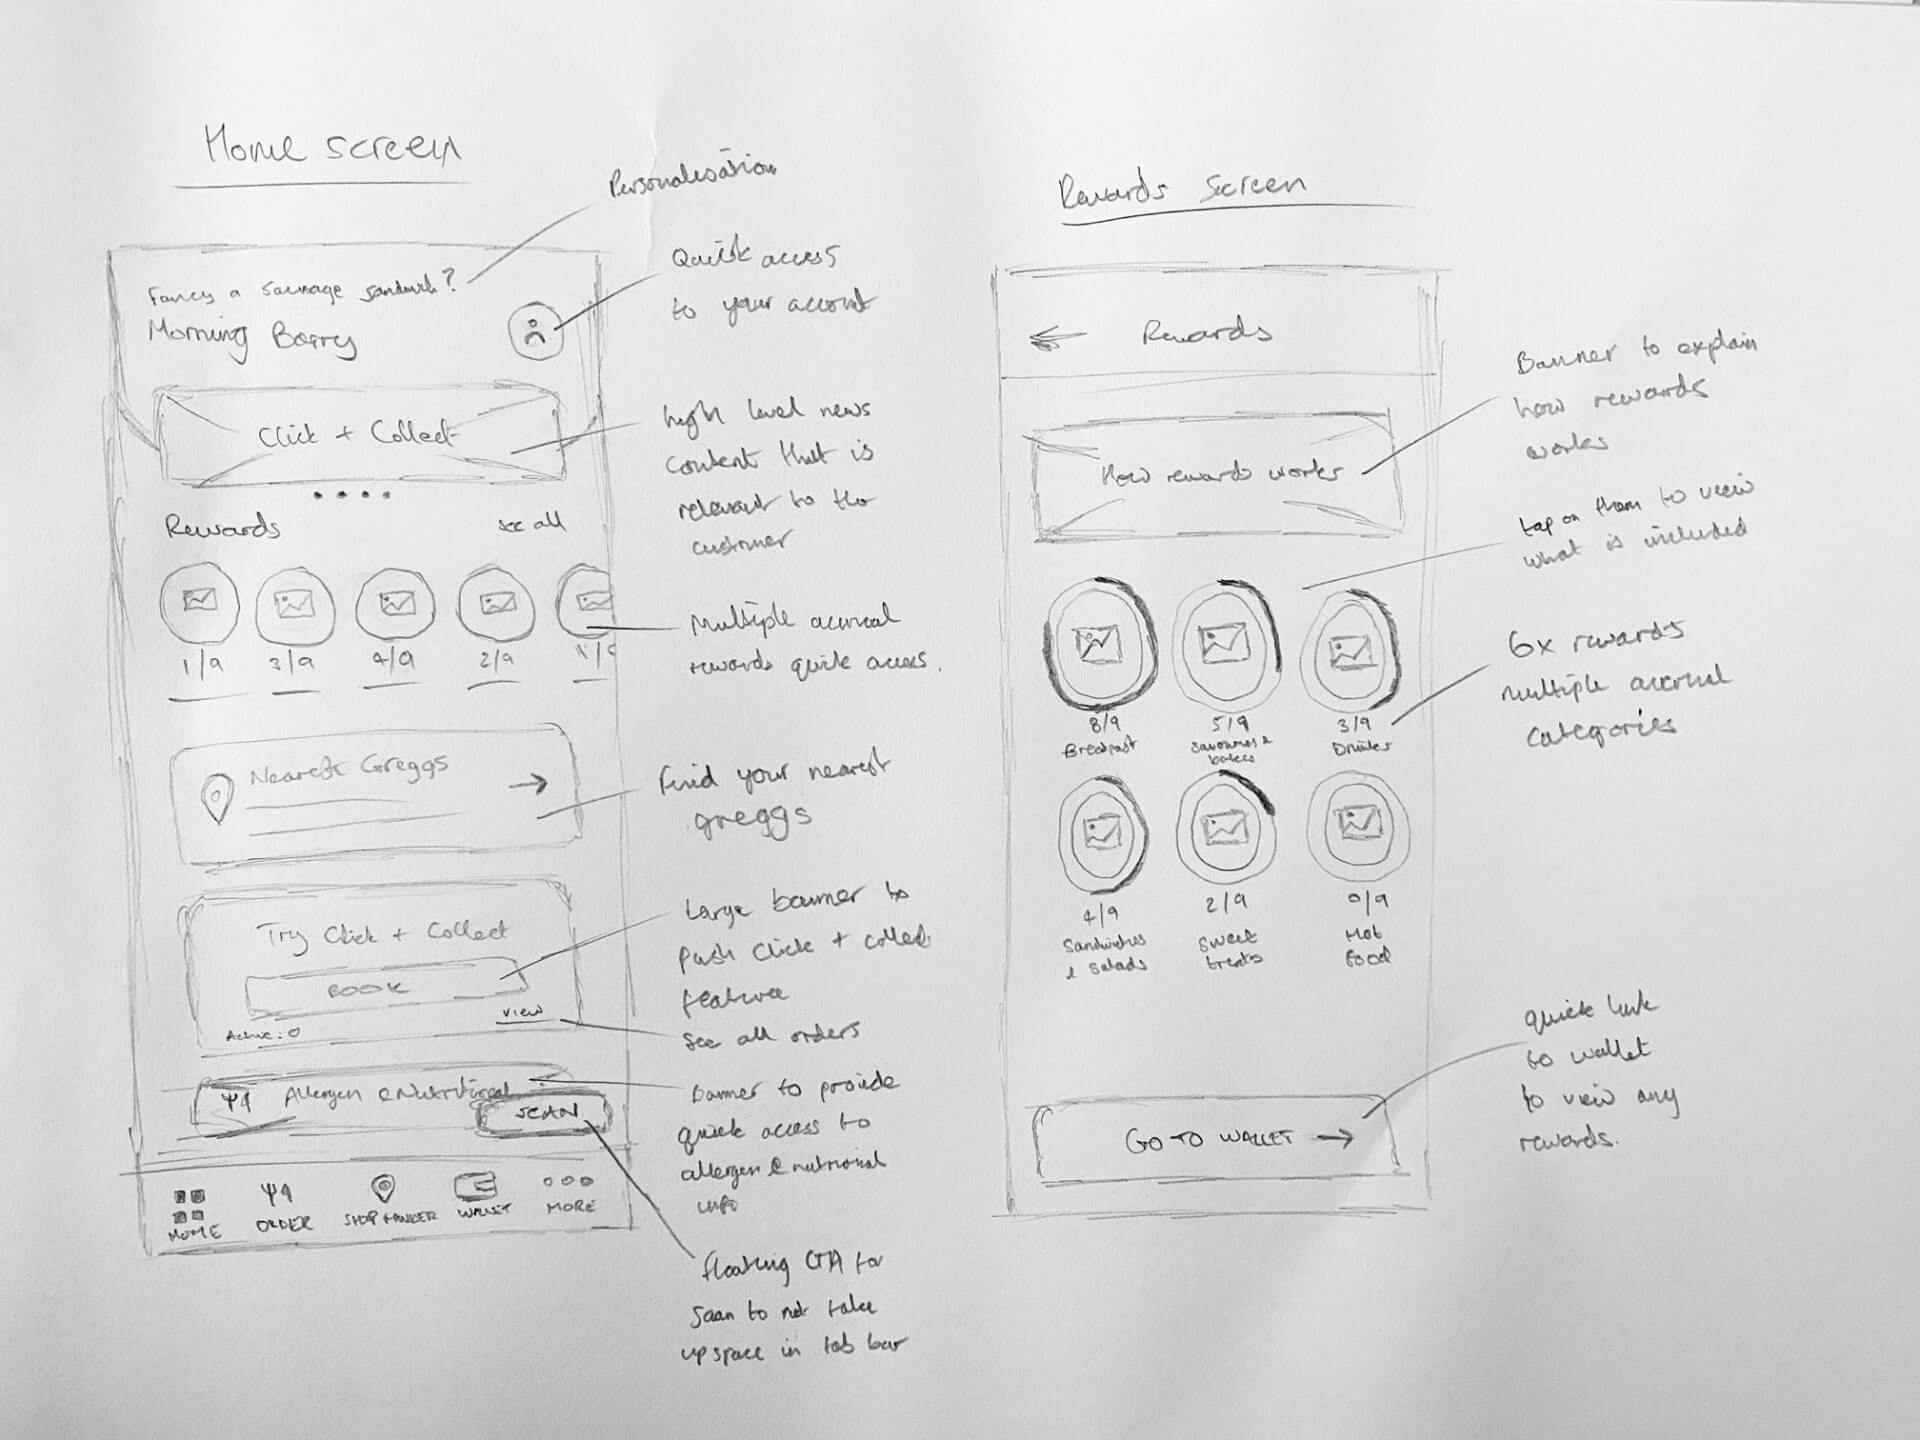 Home screen
Personalisation
Fancy a sausage sandwich?
Morning Barry
Quick access
to your account
Click + Collect
high level news
content that is
relevant to the
customer
Rewards
see all
1/9
3/9
4/9
2/9
Multiple accrual
rewards quick access.
Nearest Greggs
Find your nearest
greggs
Try Click + Collect
BOOK
Active: 0
view
Large banner to
push Click + collect
feature
See all orders
Allergen & Nutritional
SCAN
banner to provide
quick access to
allergen & nutrional
info
HOME
ORDER
SHOP FINDER
WALLET
MORE
floating CTA for
scan to not take
up space in tab bar
Rewards Screen
Rewards
Banner to explain
how rewards
works
How rewards works
tap on them to view
what is included
8/9
Breakfast
5/9
Savouries &
bakes
3/9
Drinks
6x rewards
multiple accrual
categories
4/9
Sandwiches
& Salads
2/9
Sweet
treats
0/9
Hot
Food
quick link
to wallet
to view any
rewards.
GO TO WALLET →